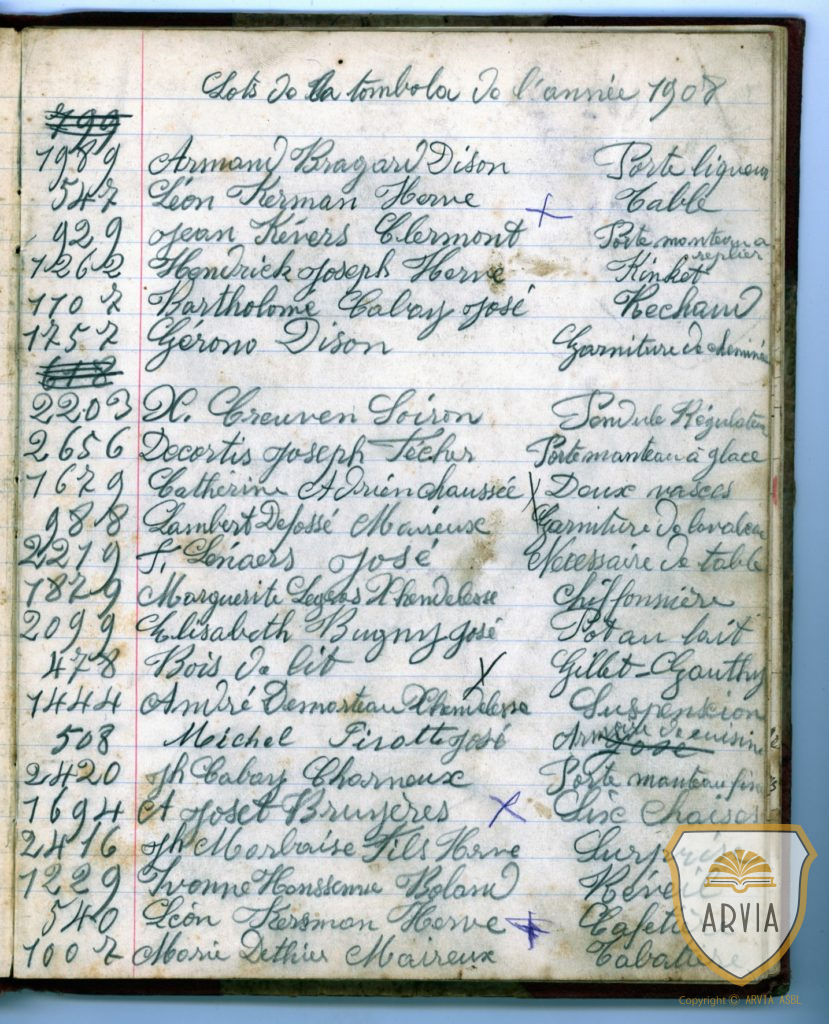 Lots de la tombola de l'année 1908
799
1989 Armand Bragard Dison Porte liqueur
547 Léon Kerman Herve + Table
929 Jean Kévers Clermont Porte manteau a replier
1262 Hendrick Joseph Herve Kinket
1107 Bartholomé Cabay José Rechaud
1757 Gerono Dison Garniture de cheminée
618
2203 X. Creuven Soiron Pendule Régulateur
2656 Decortis Joseph Fécher Porte manteau à glace
1679 Catherine Adrien chaussée X Deux vases
988 Lambert Defossé Maireux Garniture de lavabeau
2219 F. Lenaers José Nécessaire de table
1879 Marguerite Xhendelesse Chiffonnière
2099 Elisabeth Bugny José Pot au lait
478 Bois de lit X Gillet-Gauthy
1444 André Demorteau Xhendelesse Suspension
508 Michel Pirotte José Arm José de cuisine
2420 Jh Cabay Charneux Porte manteau fin
1694 A Joset Bruyères X Six Chaises
2416 Jh Marbaise Fils Herve Surprise
1229 Yvonne Honssenne Boland Réveil
540 Léon Kersman Herve + Cafetière
1007 Marie Dethier Maireux Tabatière
ARVIA
Copyright © ARVIA ASBL